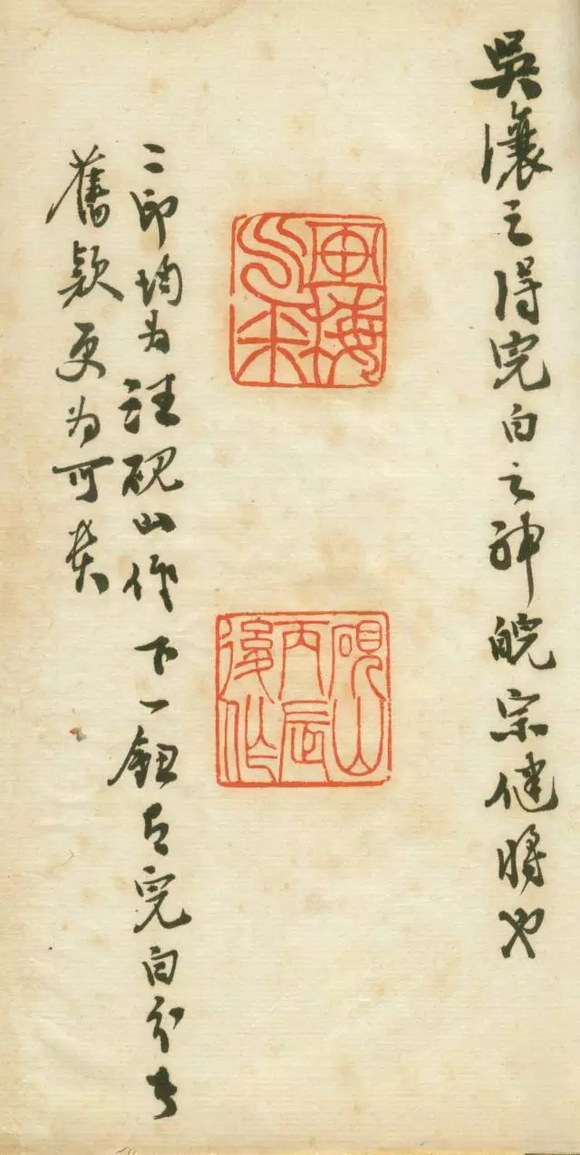 吳瀼之得完白之神皖宗健將也
画梅
乞米
硯山
丙辰
後作
二印均为汪硯山作下一鈕有完白分书
舊款更为可貴